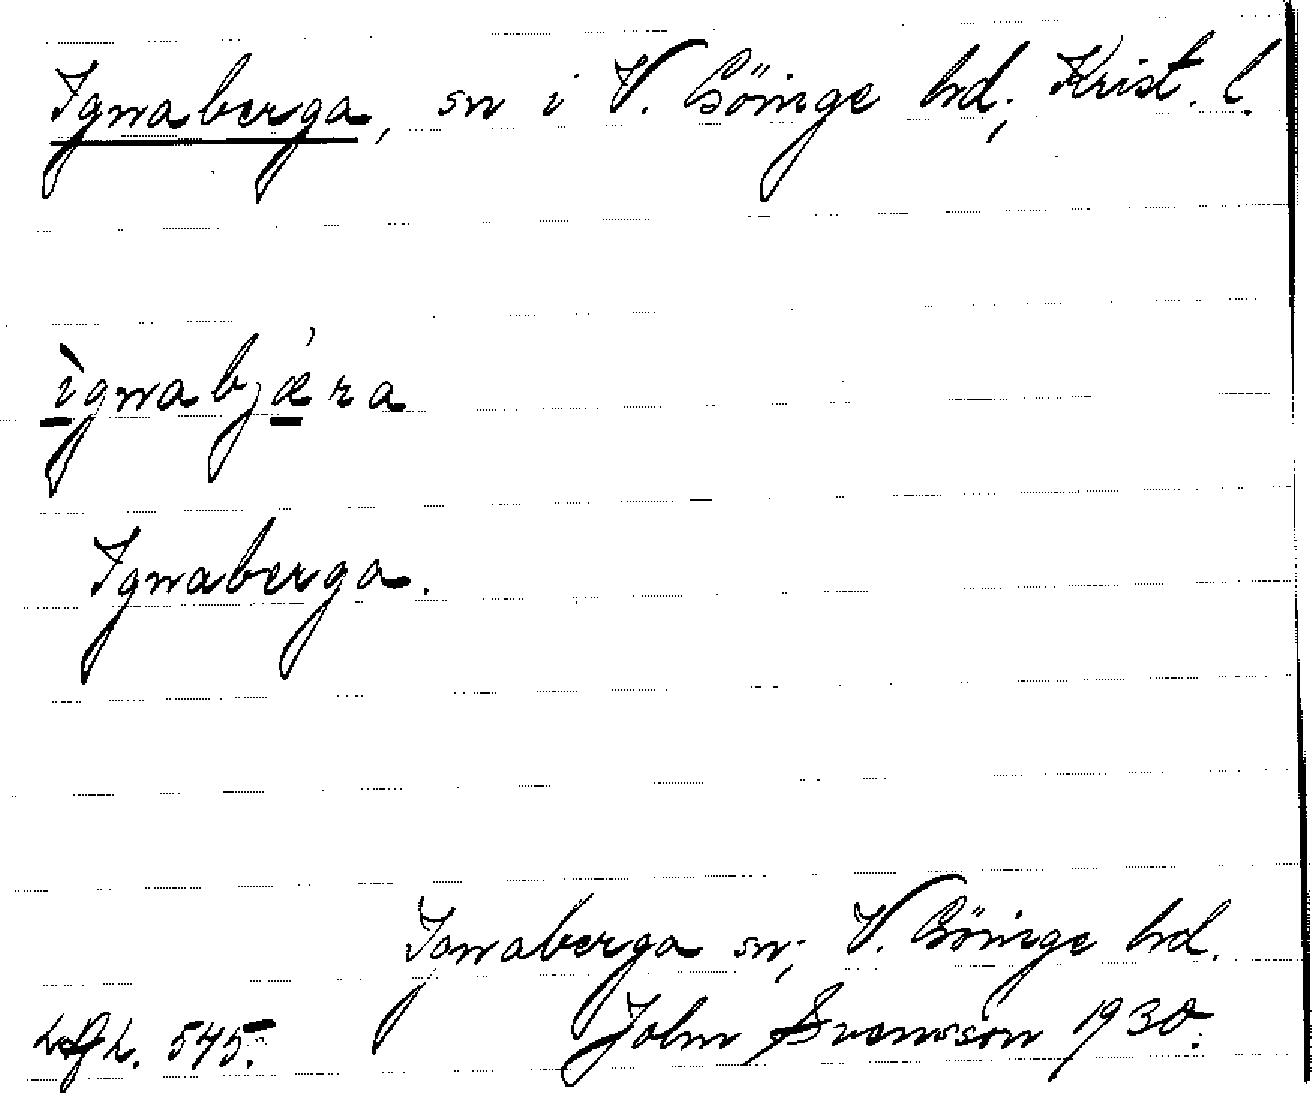 Ignaberga, sn i V. Göinge hd, Krist. l.
ìgnabjǽra
Ignaberga.
Ignaberga sn, V. Göinge hd.
545. John Svensson 1930.